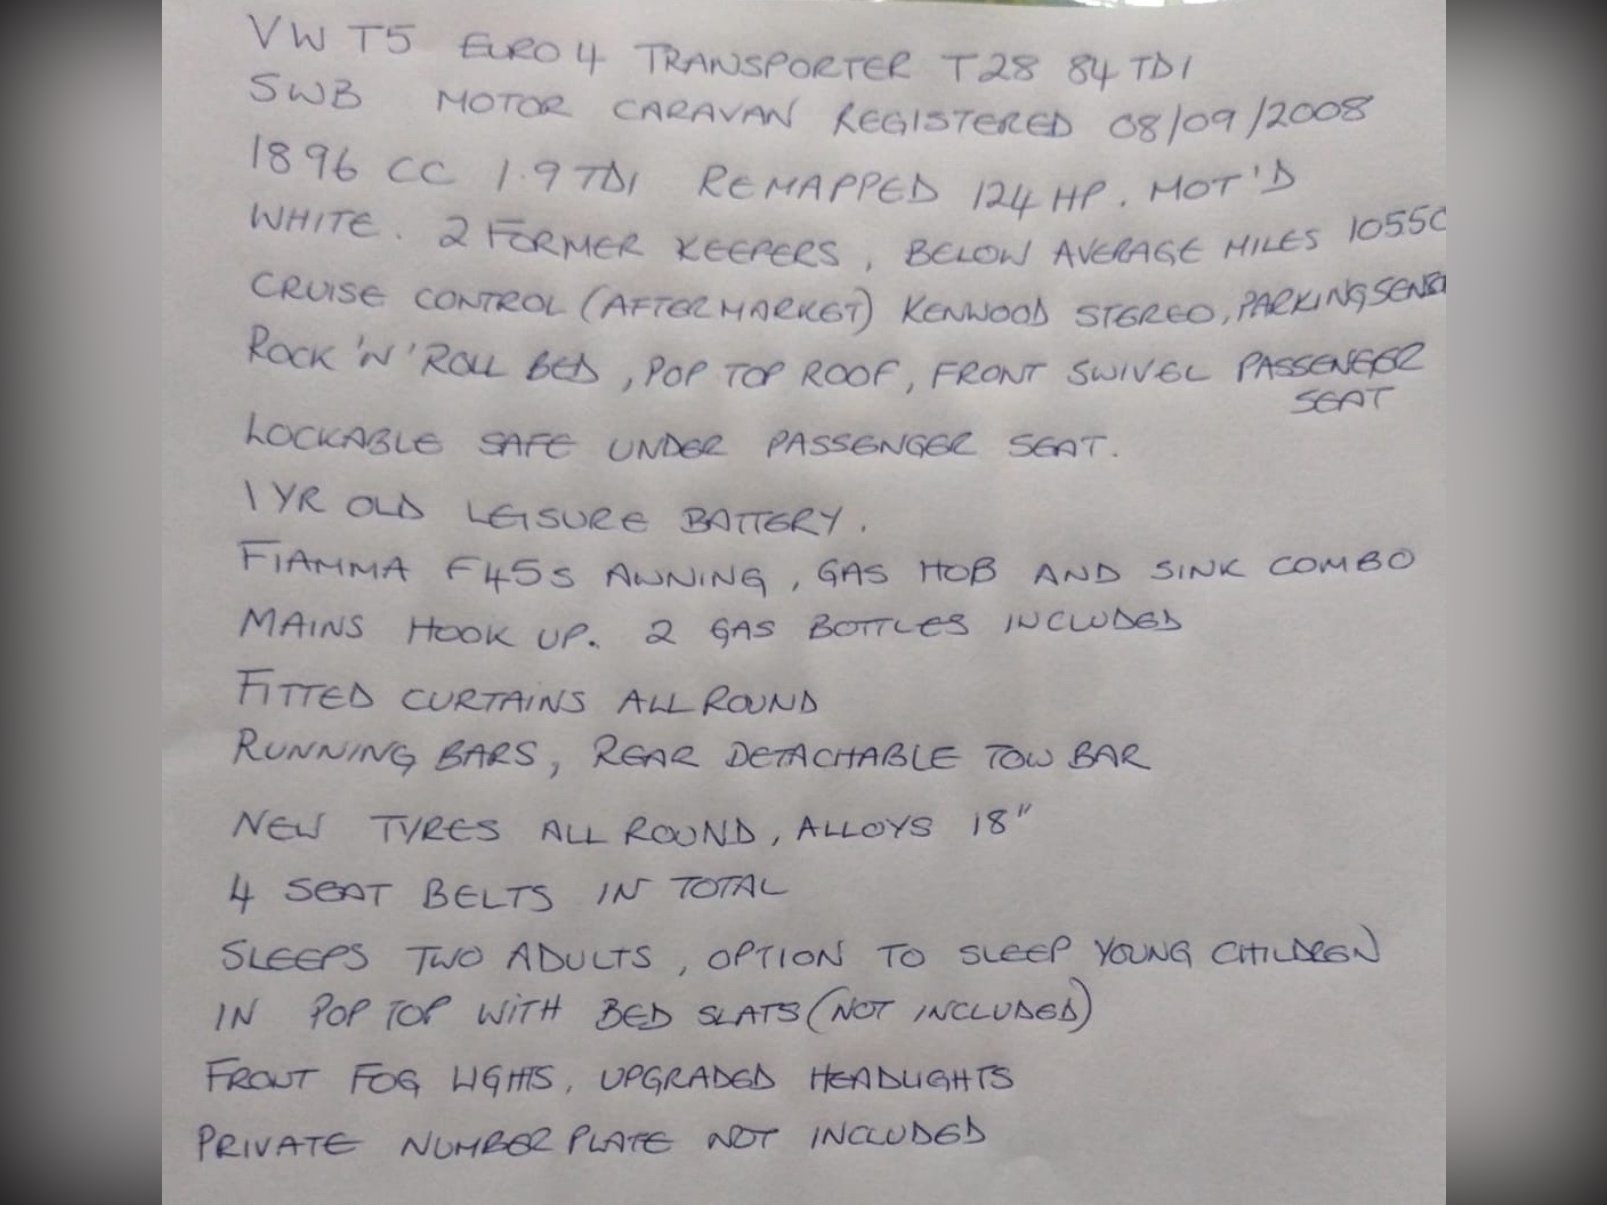 VW T5 EURO 4 TRANSPORTER T28 84 TDI
SWB MOTOR CARAVAN REGISTERED 08/09/2008
1896 CC 1.9 TDI REMAPPED 124 HP. MOT'D
WHITE. 2 FORMER KEEPERS, BELOW AVERAGE MILES 1055
CRUISE CONTROL (AFTERMARKET) KENWOOD STEREO, PARKING SENS
ROCK 'N' ROLL BED, POP TOP ROOF, FRONT SWIVEL PASSENGER
SEAT
LOCKABLE SAFE UNDER PASSENGER SEAT.
1 YR OLD LEISURE BATTERY.
FIAMMA F45s AWNING, GAS HOB AND SINK COMBO
MAINS HOOK UP. 2 GAS BOTTLES INCLUDED
FITTED CURTAINS ALL ROUND
RUNNING BARS, REAR DETACHABLE TOW BAR
NEW TYRES ALL ROUND, ALLOYS 18"
4 SEAT BELTS IN TOTAL
SLEEPS TWO ADULTS, OPTION TO SLEEP YOUNG CHILDREN
IN POP TOP WITH BED SLATS (NOT INCLUDED)
FRONT FOG LIGHTS, UPGRADED HEADLIGHTS
PRIVATE NUMBER PLATE NOT INCLUDED